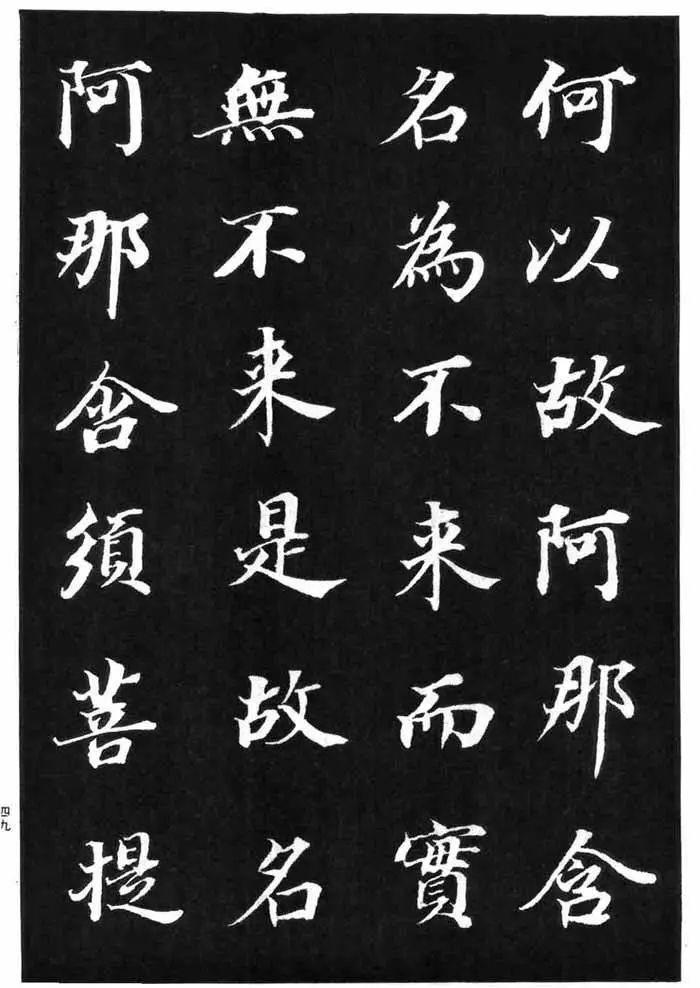 何以故阿那含
名為不来而實
無不来是故名
阿那含須菩提
四九